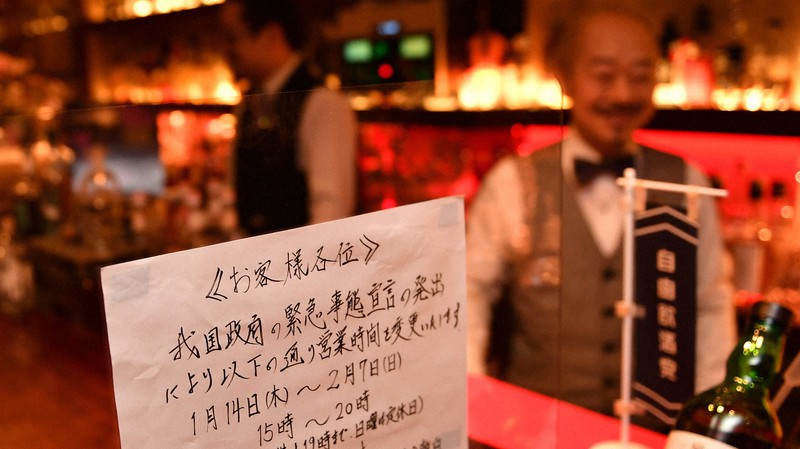 《お客様各位》
我国政府の緊急事態宣言の発出
により以下の通り営業時間を変更いたします
1月14日(木)～2月7日(日)
15時～20時
19時まで、日曜定休日)
自由飲酒党